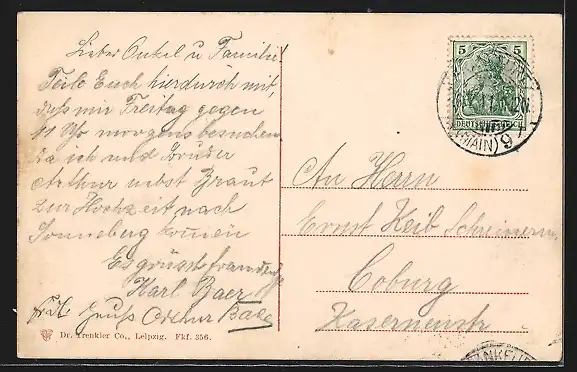 Lieber Onkel u Familie!
Teile Euch hierdurch mit,
daß wir Freitag gegen
11 Uhr morgens besuchen
da ich und Bruder
Arthur nebst Braut
zur Hochzeit nach
Sonneberg kommen
Es grüsst
Karl Baer
Gruß Arthur Baer
Dr. Trenkler Co., Leipzig. Fkf. 356.
5 5
DEUTSCHES REICH
(MAIN) 9
An Herrn
Ernst Keib Schreinerm.
Coburg
Kasernenstr